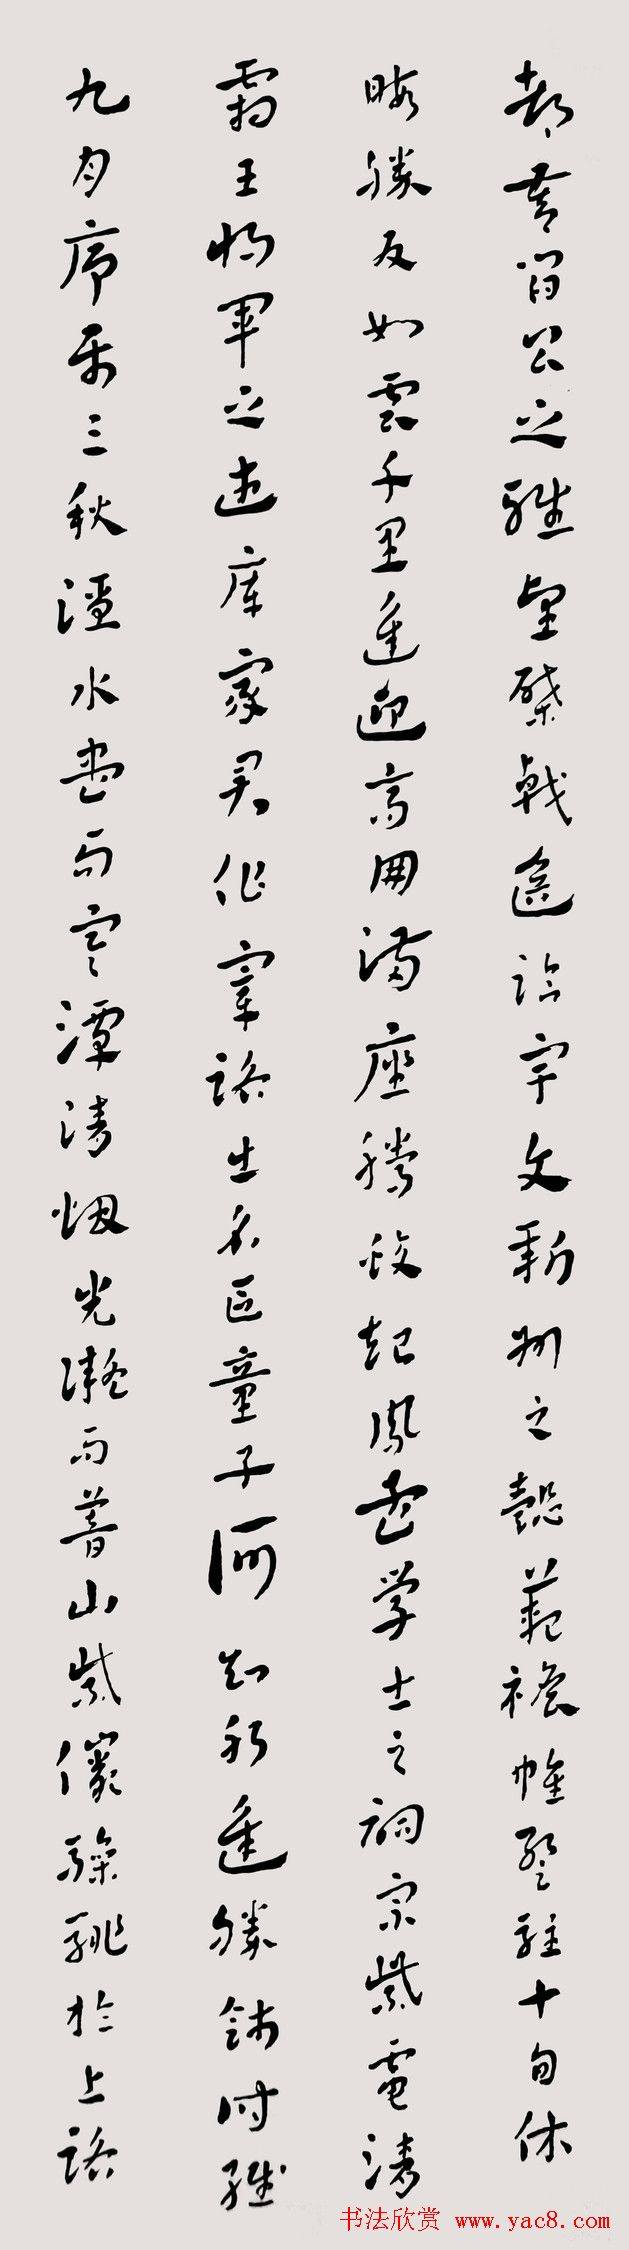 都督閻公之雅望棨戟遙臨宇文新州之懿範襜帷暫駐十旬休
暇勝友如雲千里逢迎高朋滿座騰蛟起鳳孟学士之詞宗紫電清
霜王將軍之武庫家君作宰路出名區童子何知躬逢勝餞時維
九月序屬三秋潦水盡而寒潭清烟光凝而暮山紫儼驂騑於上路
书法欣赏 www.yac8.com